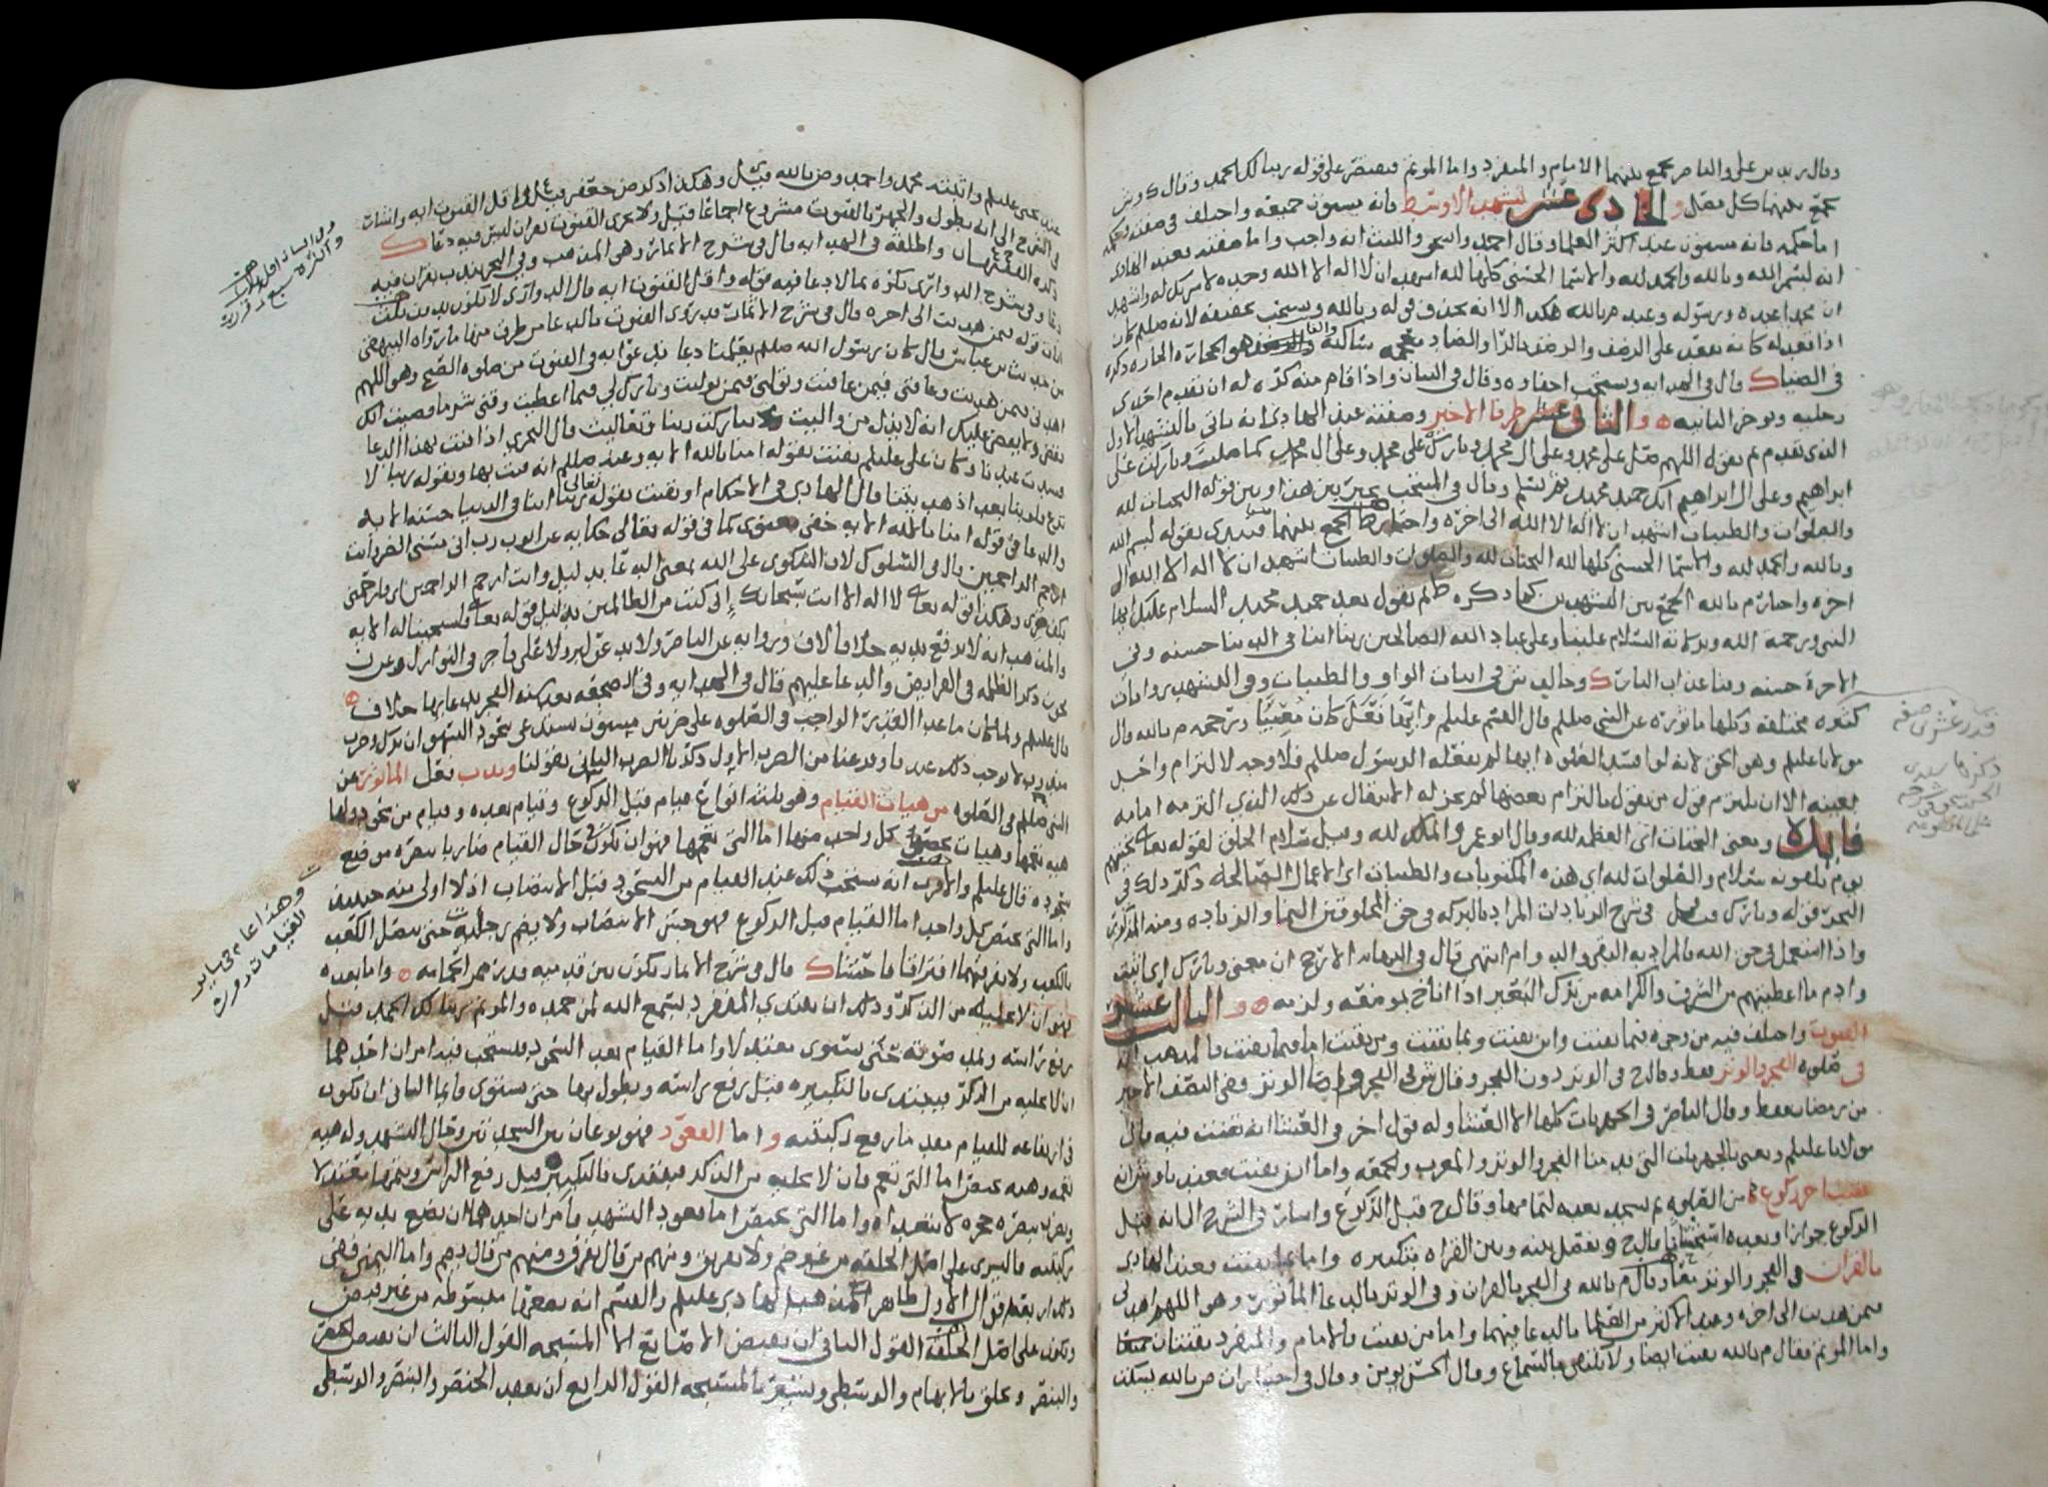 وقال زيد بن علي والناصر يجمع بينهما الامام والمنفرد واما الموتم فيقتصر على قوله ربنا لك الحمد وقال
يجمع بينهما كل مصل والحادي عشر التشهد الاوسط فانه مسنون جميعه واختلف في صفته وحكمه
اما حكمه فانه مسنون عند اكثر العلما وقال احمد واسحق والليث انه واجب واما صفته فعند الهادي
انه بسم الله وبالله والحمد لله والاسما الحسنى كلها لله اشهد ان لا اله الا الله وحده لا شريك له واشهد
ان محمدا عبده ورسوله وعند م بالله هكذا الا انه يحذف قوله وبالله ويستحب تخفيفه لانه صلعم كان
اذا قعد له كانه يقعد على الرضف والرضف بالرا والضاد معجمه ساكنة والفا هو الحجارة الحاره ذكره
في الضياء قال في الهدايه ويستحب اخفاوه وقال في البيان واذا قام منه كره له ان يقدم احدى
رجليه ويوخر الثانيه والثاني عشر طرفا الاخير وصفته عند الهادي انه ياتي بالتشهد الاول
الذي تقدم ثم يقول اللهم صل على محمد وعلى ال محمد وبارك على محمد وعلى ال محمد كما صليت وباركت على
ابراهيم وعلى ال ابراهيم انك حميد مجيد ثم يسلم وقال في المنتخب يخير بين هذا وبين قوله التحيات لله
والصلوات والطيبات اشهد ان لا اله الا الله الى اخره واختار ط الجمع بينهما فيبتدي بقوله بسم الله
وبالله والحمد لله والاسما الحسنى كلها لله التحيات لله والصلوات والطيبات اشهد ان لا اله الا الله الى
اخره واختار م بالله الجمع بين التشهدين كما ذكره ط ثم يقول بعد حميد مجيد السلام عليك ايها
النبي ورحمة الله وبركاته السلام علينا وعلى عباد الله الصالحين ربنا اتنا في الدنيا حسنه وفي
الاخرة حسنه وقنا عذاب النار وخالف ش في اثبات الواو والطيبات وفي التشهد روايات
كثيره مختلفه وكلها ماثوره عن النبي صلعم قال القسم عليلم وايها فعل كان مصيبا ورجحه م بالله قال
مولانا عليلم وهو الحق
بعينه الا ان يلتزم قول من يقول بالتزام بعضها لم يجز له الانتقال عن ذلك الذي التزمه امامه
فايدة ومعنى التحيات اي العظمه لله وقال ابو عمرو الملك لله وقيل سلام الخلق لقوله تعالى تحيتهم
يوم يلقونه سلام والصلوات لله اي هذه المكتوبات والطيبات اي الاعمال الصالحه ذكر ذلك في
قوله وبارك قيل في شرح الزيادات المراد بالبركه في حق المخلوقين النما والزياده ومنه
واذا استعمل في حق الله فالمراد به البقى والدوام انتهى قال في البرهان الارجح ان معنى وبارك اي اثبت
وادم ما اعطيتهم من الشرف والكرامه من برك البعير اذا اناخ بموضعه ولزمه والثالث عشر
القنوت واختلف فيه من وجوه فيما يقنت واين يقنت وبما يقنت ومن يقنت اما فيما يقنت فالمذهب انه
في صلوة الفجر والوتر فقط وقال ح في الوتر دون الفجر وقال ش في الفجر فرضا الوتر ففي النصف الاخير
من رمضان فقط وقال الناصر في الجهريات كلها الا العشا وله قول اخر في العشا انه يقنت فيه قال
مولانا عليلم ويعني بالجهريات التي الفجر والوتر والمغرب والجمعه واما اين يقنت فعندنا وش انه
عقيب اخر ركوع من الصلوة ثم يسجد بعده لتمامها وقال ح قبل الركوع واشار في الشرح الى انه قبل
الركوع جوازا وبعده استحبابا قال ح ويفصل بينه وبين القراة بتكبيره واما بما يقنت فعند الهادي
بالقران في الفجر والوتر معا وقال م بالله في الفجر بالقران وفي الوتر بالدعا الماثور وهو اللهم اهدني
فيمن هديت الى اخره وعند الاكثر من العلما بالدعا فيهما واما من يقنت فالامام والمنفرد يقنتان
واما الموتم فقال م بالله يقنت ايضا ولا يكتفي بالسماع وقال في احد م بالله يسكت
قدر عشر
وذكره
عند يحيى عليلم واثبته محمد واحمد وم بالله قيل وهكذا ذكره جعفر واقل القنوت ايه واشار
في الشرح الى انه يطول والجهر بالقنوت مشروع اجماعا قيل ولا يجزي القنوت بقران ليس فيه دعا
ذكره الفقيهان واطلقه في الهدايه قال في شرح الاثمار وهو المذهب وفي البحر يندب بقران فيه
دعا وفي شرح الدواري يكره بما لا دعا فيه قوله واقل القنوت ايه قال الدواري لا تكون
قوله فيمن هديت الى اخره قال في شرح الاثمار قد روي القنوت بالدعا من طرق منها ما رواه البيهقي
من حديث ابن عباس قال كان رسول الله صلعم يعلمنا دعا ندعوا به في القنوت من صلوة الصبح وهو اللهم
اهدني فيمن هديت وعافني فيمن عافيت وتولني فيمن توليت وبارك لي فيما اعطيت وقني شر ما قضيت انك
تقضي ولا يقضى عليك انه لا يذل من واليت تباركت ربنا وتعاليت قال البحري اذا قنت بهذا الدعا
وكان علي عليلم يقنت بقوله امنا بالله الايه وعنه صلعم انه قنت بها وبقوله ربنا لا
تزغ قلوبنا بعد اذ هديتنا قال الهادي في الاحكام او يقنت بقوله تعالى ربنا اتنا في الدنيا حسنه الايه
والدعا في قوله امنا بالله الايه خفي معنوي كما في قوله تعالى حكايه عن ايوب رب اني مسني الضر وانت
ارحم الراحمين قال في السلوك لان الشكوى على الله بمعنى الدعا بدليل وانت ارحم الراحمين اي فارحمني
وهكذا قوله تعالى لا اله الا انت سبحانك اني كنت من الظالمين بدليل قوله تعالى فاستجبنا له الايه
والمذهب انه لا يرفع يديه خلافا لاف وروايه عن الناصر ولا يدعو لبر ولا على فاجر وفي النوازل
يجوز ذكر الظلمه في الفرايض والدعا عليهم قال في الهدايه وفي الصحفه بعد سنه الفجر يدعا بها خلاف
قال عليلم ولما كان ما عدا القدر الواجب في الصلوه على ضربين مسنون يستدعي سجود السهو ان ترك وضرب
مندوب لا يوجب ذلك عندنا وفرغنا من الضرب الاول ذكرنا الضرب الثاني بقولنا وندب فعل الماثور عن
النبي صلعم في الصلوه من هيات القيام وهو ثلثة انواع قيام قبل الركوع وقيام بعده وقيام من سجود ولها
هيه تعمها وهيات تختص كل واحد منها اما التي تعمها فهو ان يكون في حال القيام ضاربا ببصره موضع
سجوده قال عليلم والاقرب انه يستحب ذلك عند القيام من السجود قبل الانتصاب اذ لا اولى منه حينيذ
واما التي تختص كل واحد اما القيام قبل الركوع فهو حسن الانتصاب ولا يضم رجليه حتى يتصل الكعب
بالكعب ولا يفرقهما افتراقا فاحشا قال في شرح الاثمار يكون بين قدميه قدر شبر واما بعده
فهو ان لا يخليه من الذكر وذلك ان يبتدي المنفرد بسمع الله لمن حمده والموتم ربنا لك الحمد قبل
رفع راسه ويمد صوته حتى يستوي معتدلا واما القيام بعد السجود فيستحب فيه امران احدهما
ان لا يخليه من الذكر فيبتدي بالتكبيره قبل رفع راسه ويطول بها حتى يستوي قايما الثاني ان يكون
في ارتفاعه للقيام بعد ما رفع ركبتيه واما القعود فهو نوعان بين السجدتين وحال التشهد وله هيه
تعمه وهيه تختص اما التي تعم فان لا يخليه من الذكر فيبتدي بالتكبير قبل رفع الراس ويتمها معتدلا
ويضرب ببصره حجره لا يتعداه واما التي تختص اما قعود التشهد فامران احدهما ان يضع يديه على
ركبتيه فاليسرى على اصل الخلقه من غير ضم ولا تفريق ومنهم من قال يفرق ومنهم من قال يضم واما اليمنى ففي
ذلك اربعة اقوال الاول ظاهر المذهب الهادي عليلم والقسم انه يضعها مبسوطه من غير قبض
وتكون على اصل الخلقه القول الثاني ان يقبض الاصابع الا المسبحه القول الثالث ان يقبض الخنصر
والبنصر ويحلق بالابهام والوسطى ويشير بالمسبحه القول الرابع ان يعقد الخنصر والبنصر والوسطى
وهذا عام في ساير
القيامات